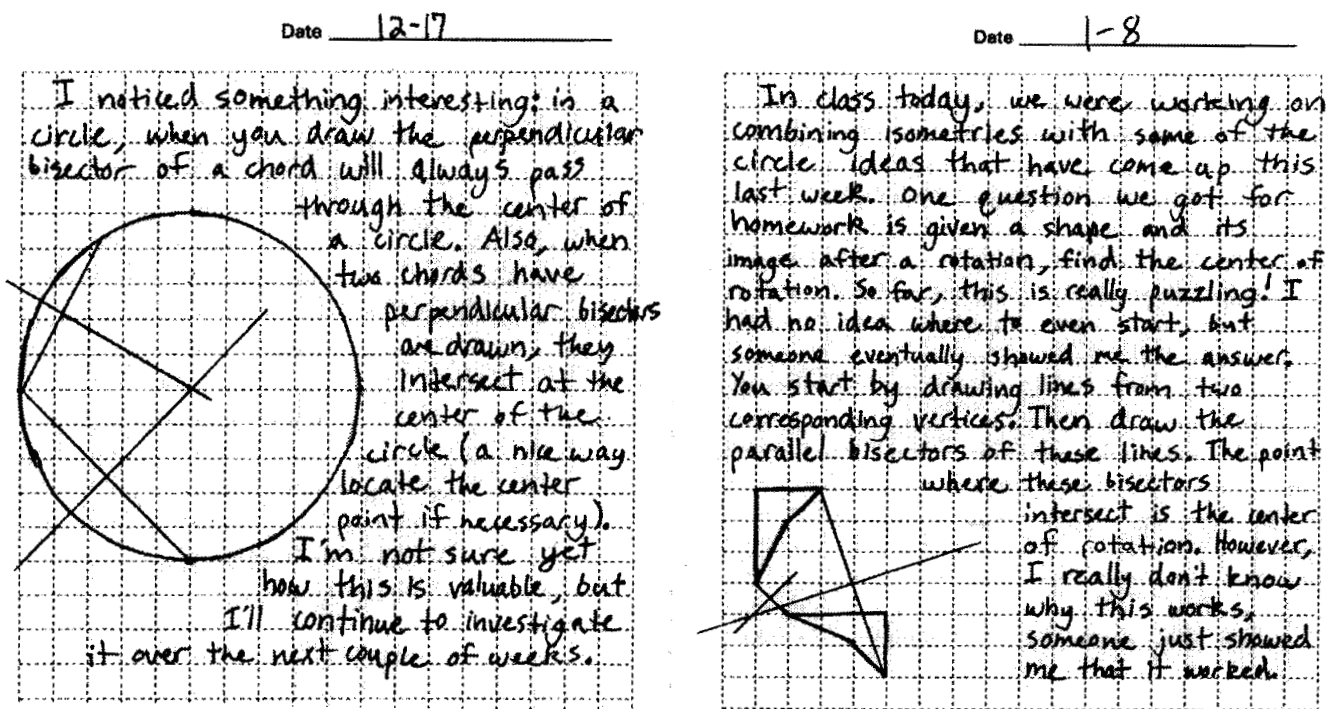 Date 12-17
I noticed something interesting: in a
circle, when you draw the perpendicular
bisector of a chord will always pass
through the center of
a circle. Also, when
two chords have
perpendicular bisectors
are drawn, they
intersect at the
center of the
circle (a nice way
locate the center
point if necessary).
I'm not sure yet
how this is valuable, but
I'll continue to investigate
it over the next couple of weeks.
Date 1-8
In class today, we were working on
combining isometries with some of the
circle ideas that have come up this
last week. One question we got for
homework is given a shape and its
image after a rotation, find the center of
rotation. So far, this is really puzzling! I
had no idea where to even start, but
someone eventually showed me the answer.
You start by drawing lines from two
corresponding vertices. Then draw the
parallel bisectors of these lines. The point
where these bisectors
intersect is the center
of rotation. However,
I really don't know
why this works,
someone just showed
me that it worked.